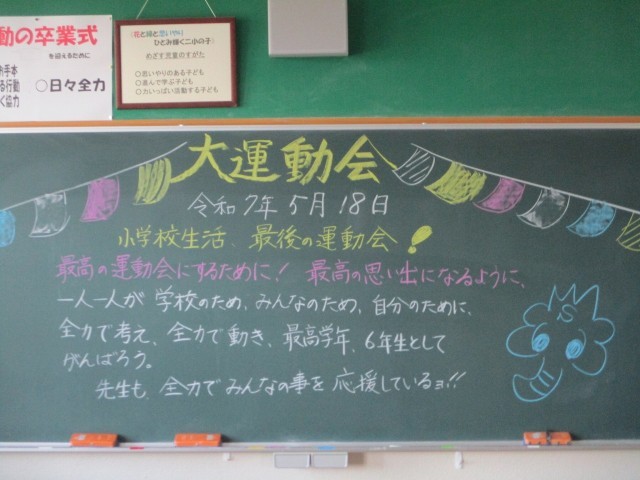 動の卒業式
を迎えるために
お手本
る行動
く協力
○日々全力
〈花と緑と思いやり
ひとみ輝く二小の子〉
めざす児童のすがた
○思いやりのある子ども
○進んで学ぶ子ども
○力いっぱい活動する子ども
大運動会
令和7年5月18日
小学校生活、最後の運動会!
最高の運動会にするために! 最高の思い出になるように、
一人一人が 学校のため、みんなのため、自分のために、
全力で考え、全力で動き、最高学年、6年生として
がんばろう。
先生も、全力でみんなの事を応援しているョ!!
S